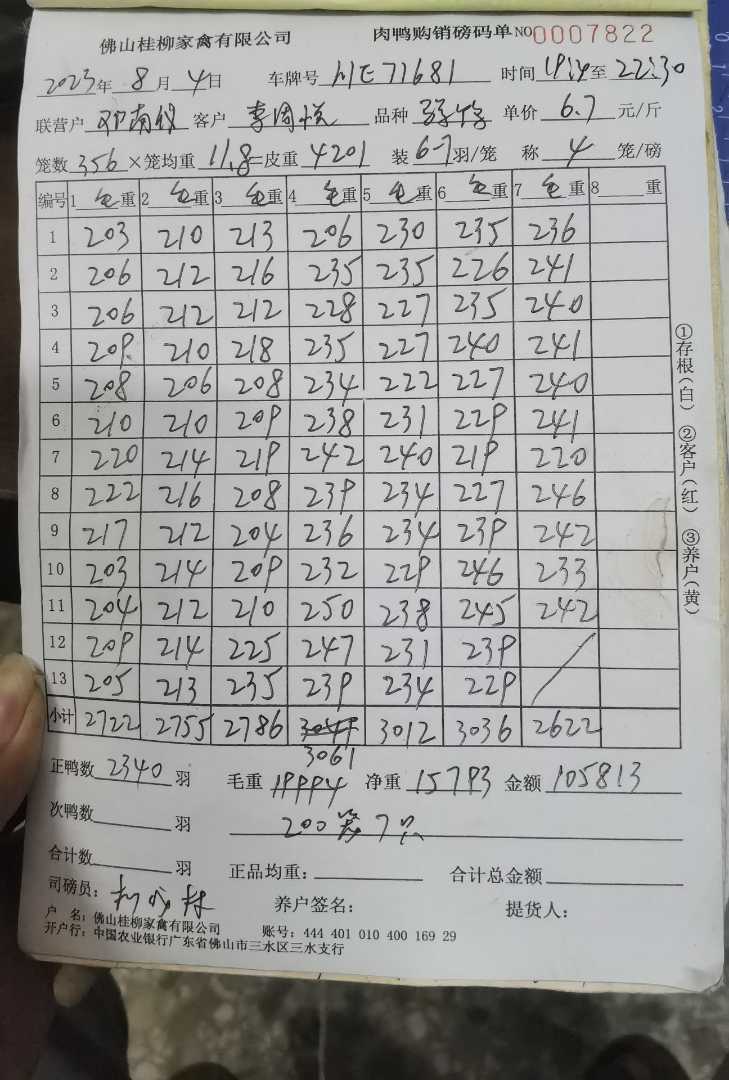 佛山桂柳家禽有限公司 肉鸭购销磅码单 NO 0007822
2023年 8月 4日 车牌号 H1E71681 时间 至 22:30
联营户 邓南 客户 李 品种 单价 6.7 元/斤
笼数 356 ×笼均重 11.8 =皮重 4201 装 6-7 羽/笼 称 4 笼/磅
编号 1 毛重 2 毛重 3 毛重 4 毛重 5 毛重 6 毛重 7 毛重 8 重
1 203 210 213 206 230 235 236
2 206 212 216 235 235 226 241
3 206 212 212 228 227 235 240
4 209 210 218 235 227 240 241
5 208 206 208 234 222 227 240
6 210 210 209 238 231 229 241
7 220 214 219 242 240 219 220
8 222 216 208 239 234 227 246
9 217 212 204 236 234 239 242
10 203 214 209 232 229 246 233
11 204 212 210 250 238 245 242
12 209 214 225 247 231 239 /
13 205 213 235 239 234 229
小计 2722 2755 2786 3061 3012 3036 2622
正鸭数 2340 羽 毛重 19994 净重 15793 金额 105813
次鸭数 羽 200笼7只
合计数 羽 正品均重: 合计总金额
司磅员: 养户签名: 提货人:
户 名: 佛山桂柳家禽有限公司 账号: 444 401 010 400 169 29
开户行: 中国农业银行广东省佛山市三水区三水支行
①存根(白) ②客户(红) ③养户(黄)